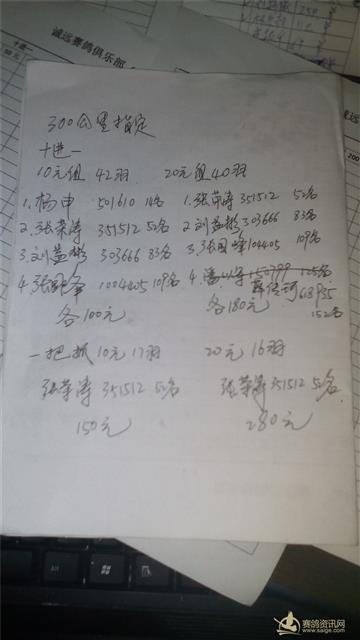 诚远赛鸽俱乐部
十进一
300公里指定
十进一
10元组 42羽 20元组 40羽
1. 杨申 501610 14名 1. 张荣涛 351512 52名
2. 张荣涛 351512 52名 2 刘益彬 303666 83名
3. 刘益彬 303666 83名 3. 张国峰 104405 109名
4. 张国峰 1004405 109名 4. 潘 150799 125名
668935
152名
各100元 各180元
一把抓 10元 17羽 20元 16羽
张荣涛 351512 52名 张荣涛 351512 52名
150元 280元
赛鸽资讯网
www.saige.com